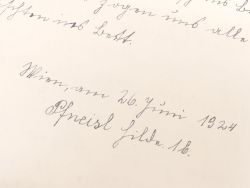 zogen uns alle
ins Bett.
Wien, am 26. Juni 1924
Pfneisl Hilde 1b.